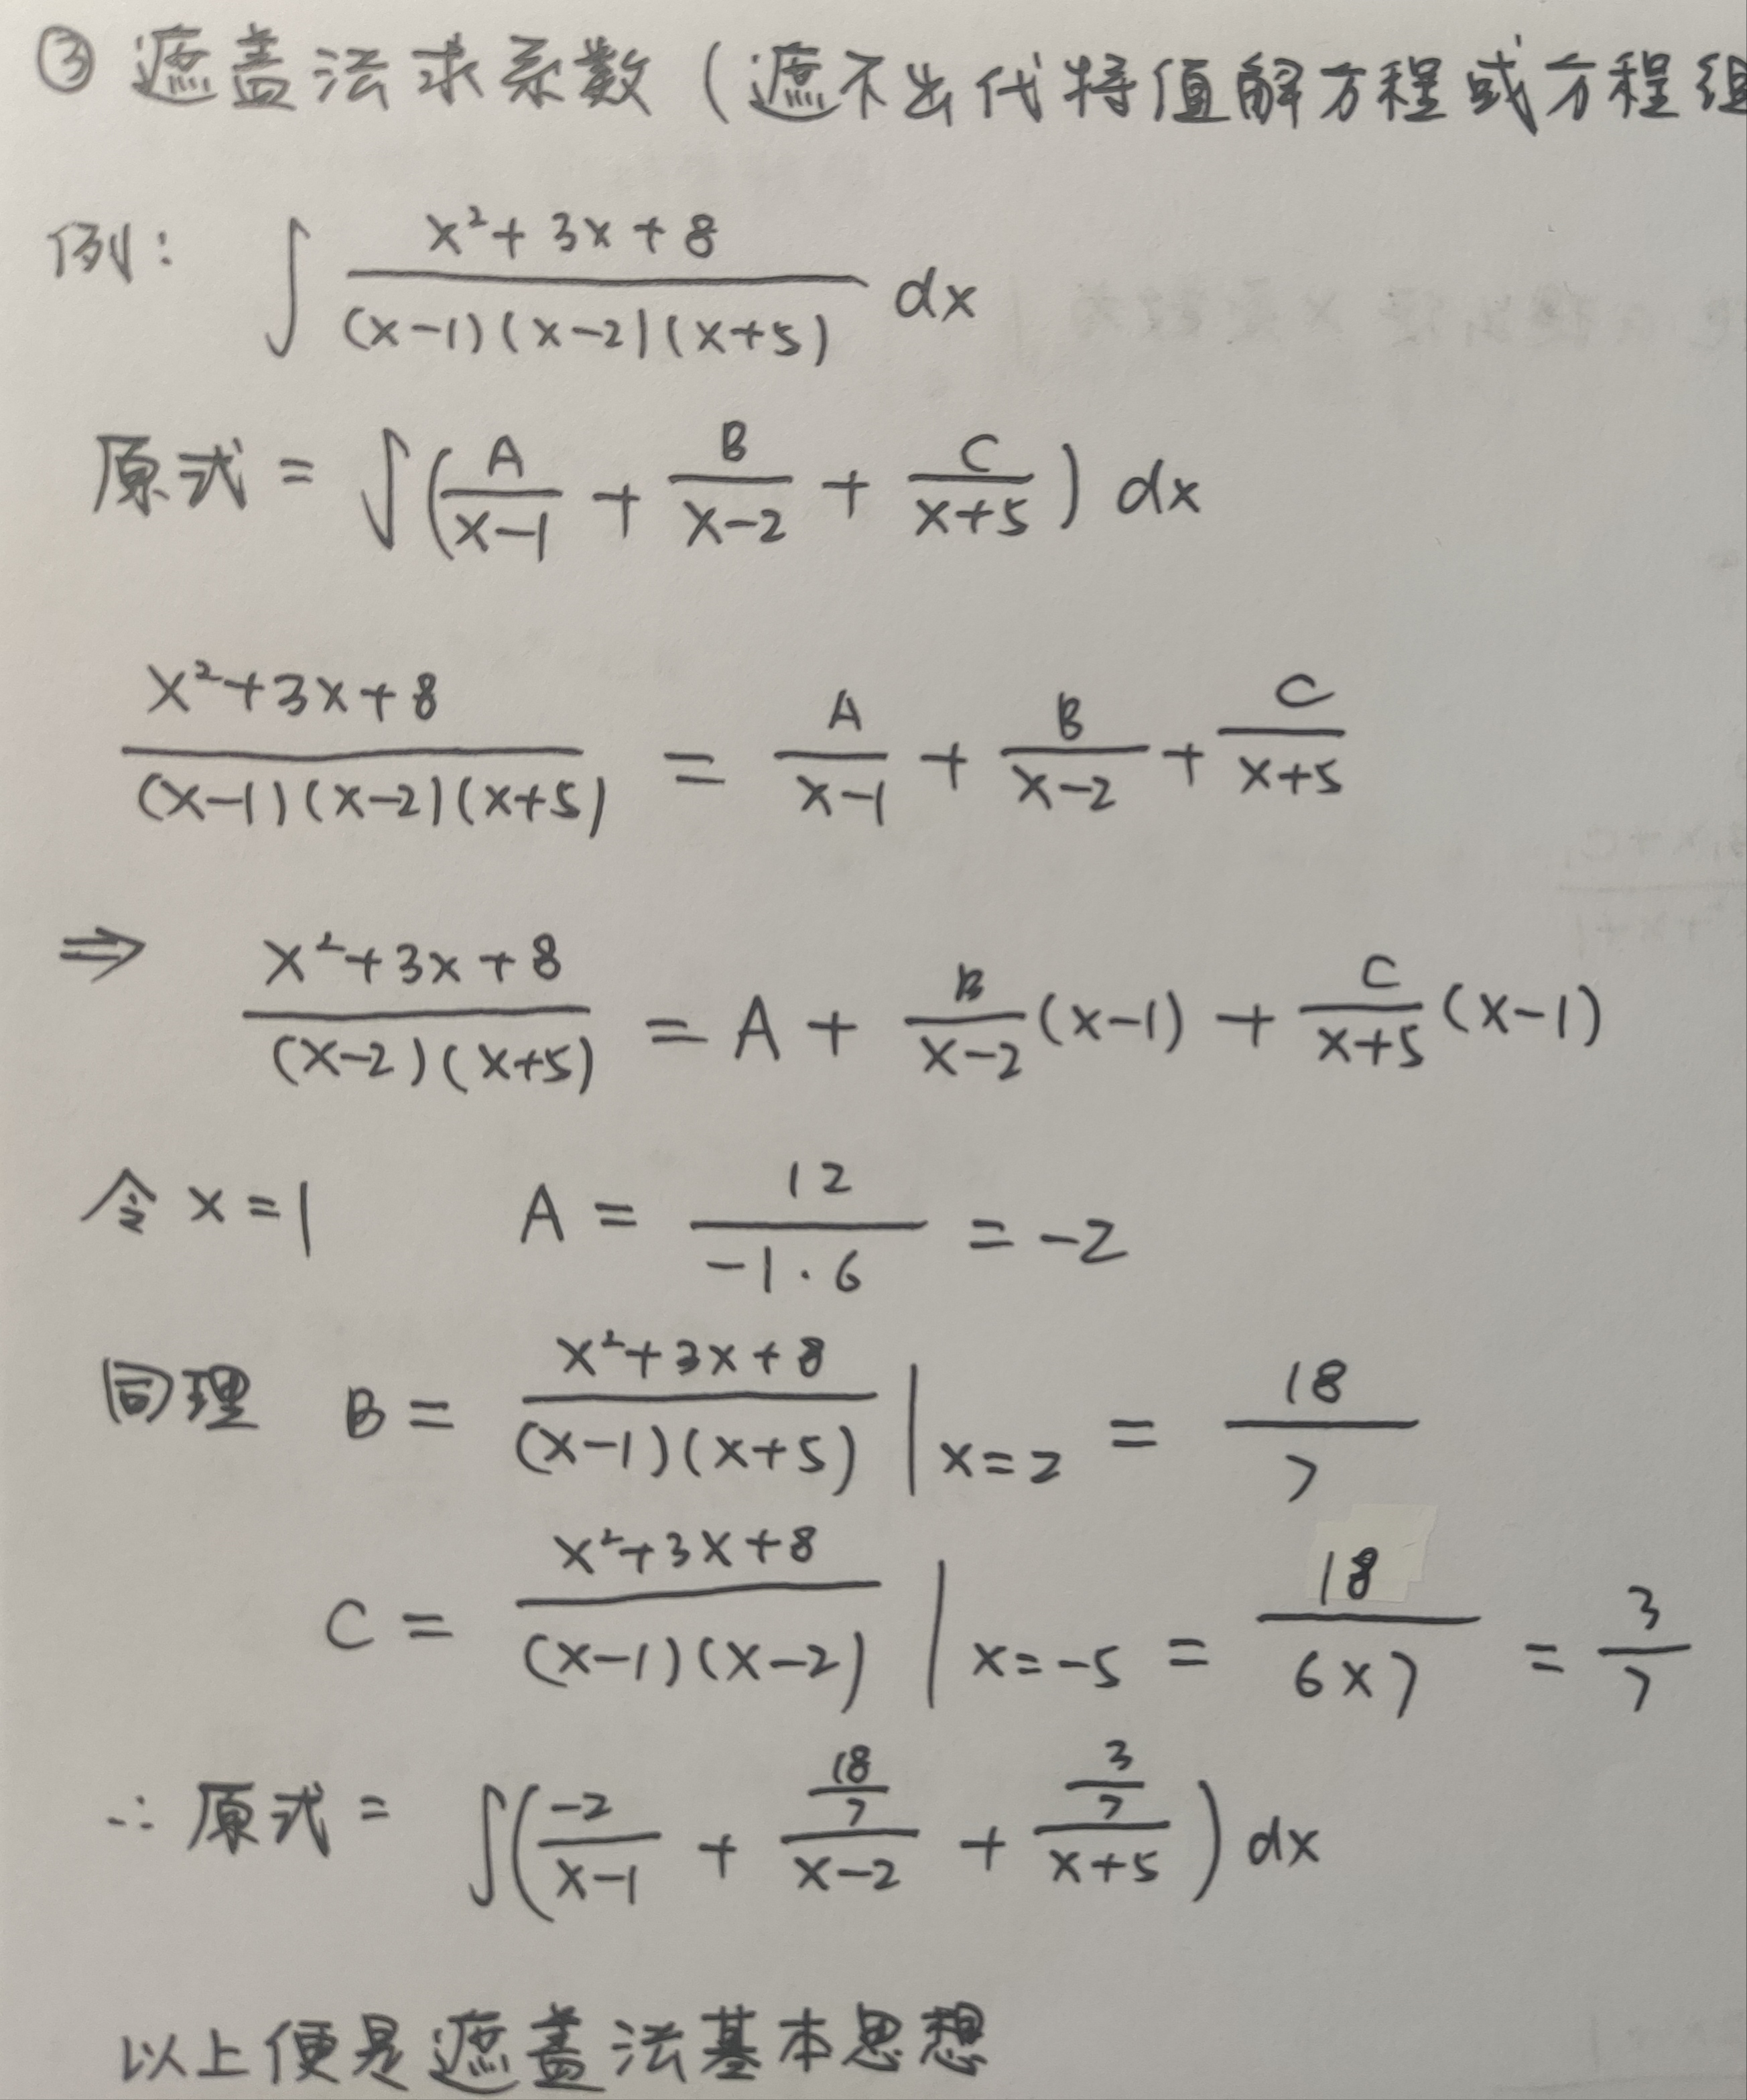 ③ 遮盖法求系数(遮不出代特值解方程或方程组
例: ∫ (x²+3x+8)/((x-1)(x-2)(x+5)) dx
原式 = ∫(A/(x-1) + B/(x-2) + C/(x+5)) dx
(x²+3x+8)/((x-1)(x-2)(x+5)) = A/(x-1) + B/(x-2) + C/(x+5)
⇒ (x²+3x+8)/((x-2)(x+5)) = A + B/(x-2) (x-1) + C/(x+5) (x-1)
令 x=1 A = 12/(-1·6) = -2
同理 B = (x²+3x+8)/((x-1)(x+5)) | x=2 = 18/7
C = (x²+3x+8)/((x-1)(x-2)) | x=-5 = 18/(6×7) = 3/7
∴ 原式 = ∫(-2/(x-1) + (18/7)/(x-2) + (3/7)/(x+5)) dx
以上便是遮盖法基本思想